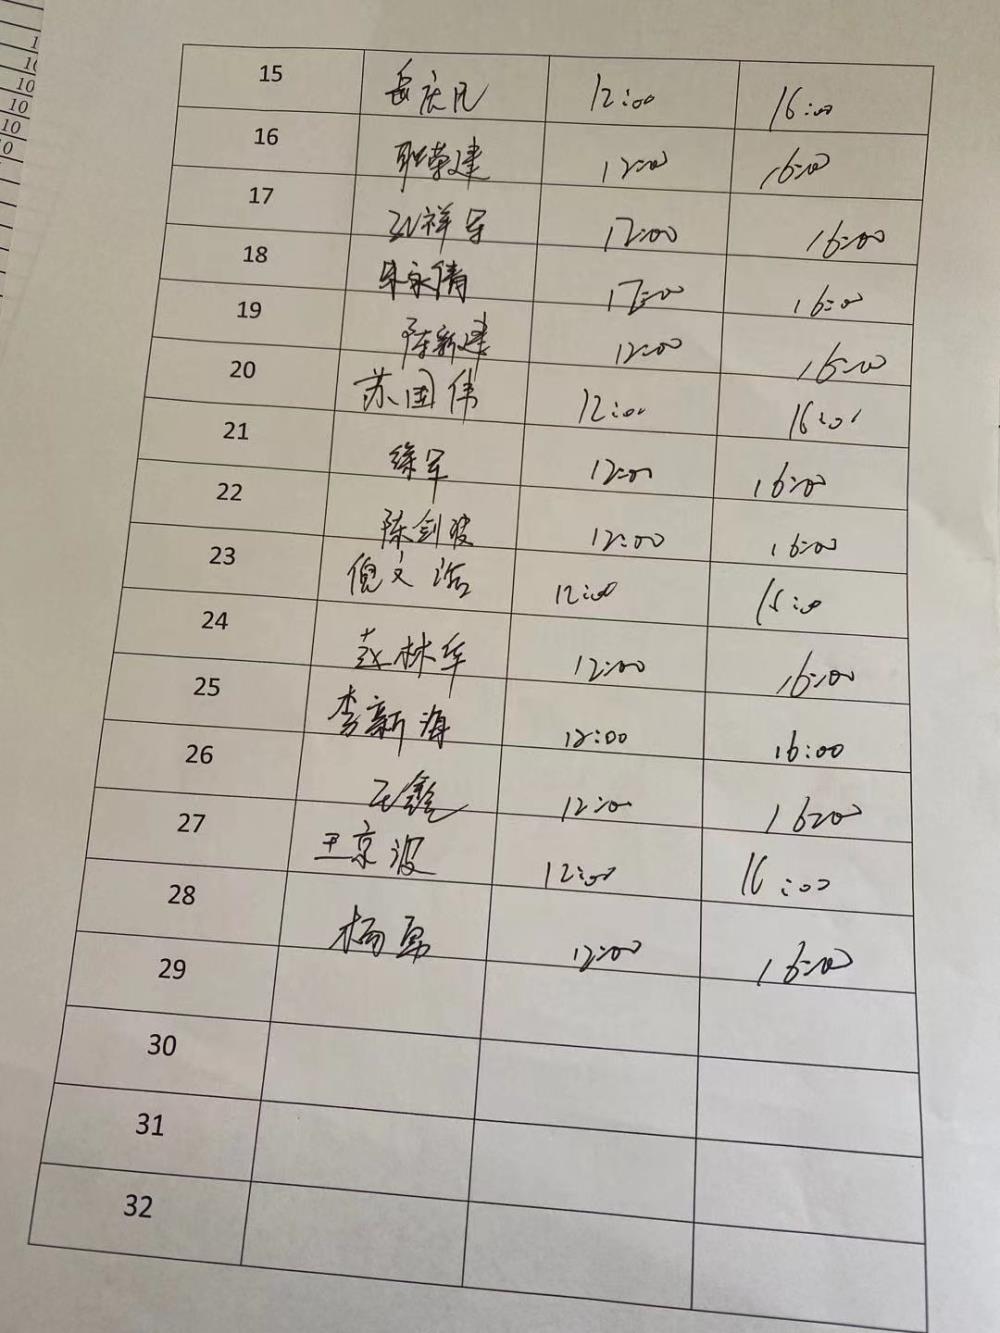 15 岳庆民 12:00 16:00
16 耿荣建 12:00 16:00
17 孙祥军 12:00 16:00
18 朱永倩 12:00 16:00
19 陈新建 12:00 16:00
20 苏国伟 12:00 16:00
21 徐军 12:00 16:00
22 陈剑波 12:00 16:00
23 倪文 12:00
24 赵林华 12:00 16:00
25 李新海 12:00 16:00
26 王鑫 12:00 16:00
27 王京波 12:00 16:00
28 杨勇 12:00 16:00
29
30
31
32